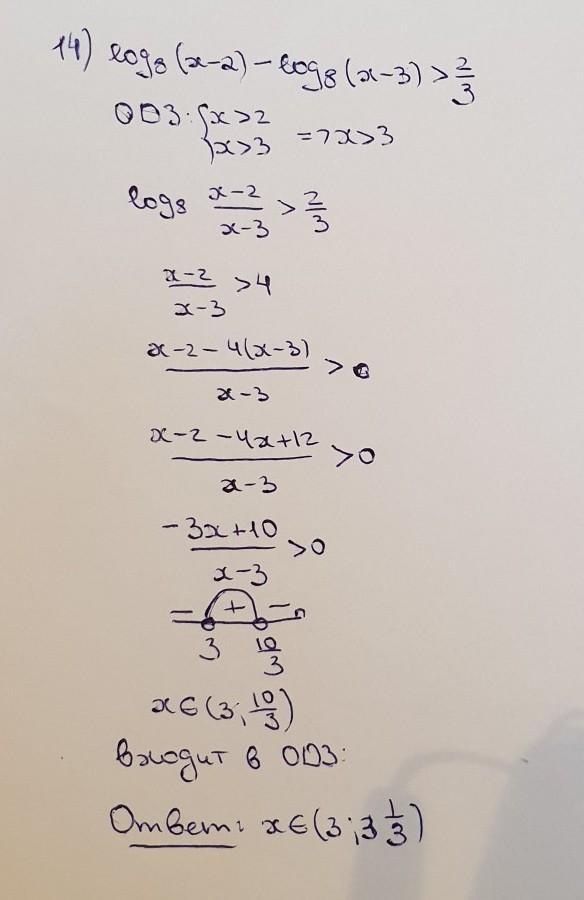 14) log₈(x-2) - log₈(x-3) > 2/3
ОДЗ: {x>2
x>3 => x>3
log₈ (x-2)/(x-3) > 2/3
(x-2)/(x-3) > 4
(x-2-4(x-3))/(x-3) > 0
(x-2-4x+12)/(x-3) > 0
(-3x+10)/(x-3) > 0
- + -
3 10/3
x∈(3; 10/3)
входит в ОДЗ:
Ответ: x∈(3; 3 1/3)